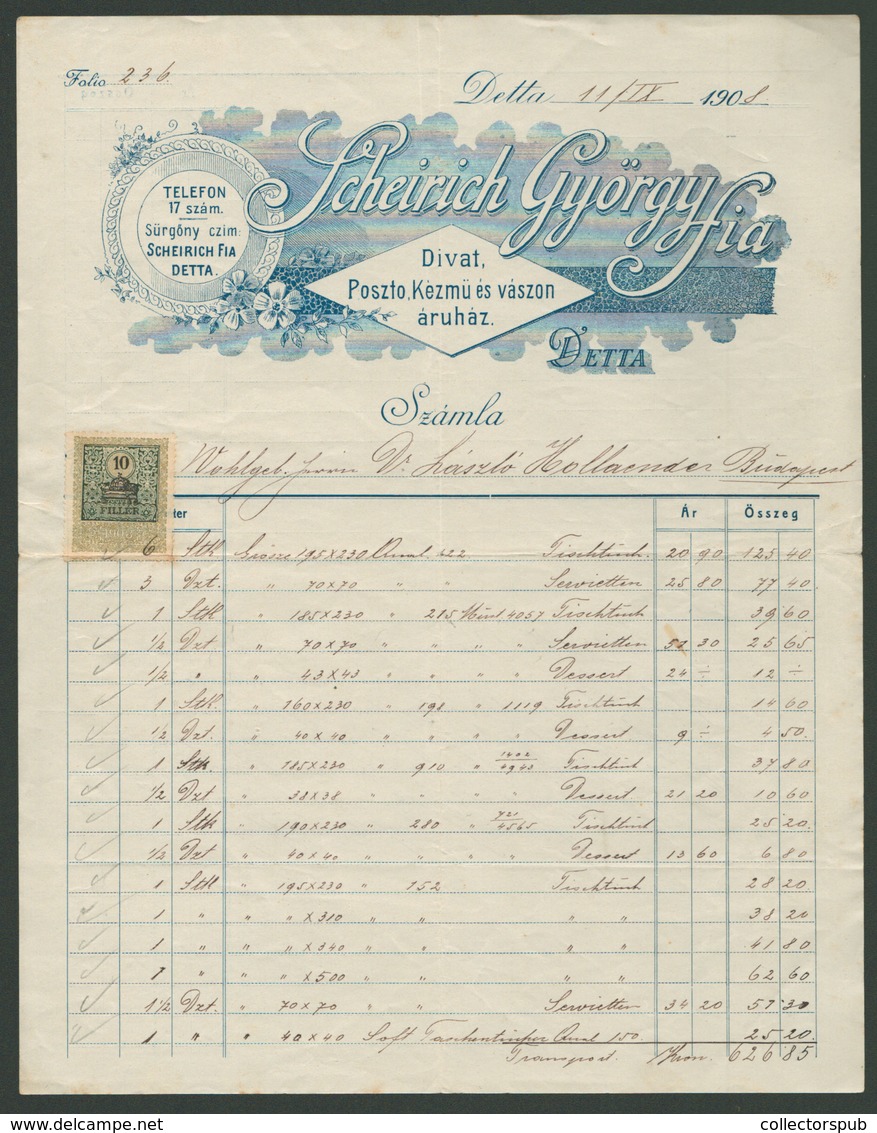 Folio 236
Detta 11/IX 1908
Scheirich György fia
TELEFON
17 szám.
Sürgöny czim:
SCHEIRICH FIA
DETTA.
Divat,
Poszto, Kèzmü és vászon
áruház.
DETTA
Számla
10
FILLÉR
Wohlgeb. Herrn Dr László Hollaender Budapest
ter Ár Összeg
6 Stk 195x230 Qual. 422 Tischtuch 20 90 125 40
3 Dzt. " 70x70 " " Servietten 25 80 77 40
1 Stk " 185x230 " 215 Must 4057 Tischtuch 39 60
1/2 Dzt " 70x70 " " " " Servietten 51 30 25 65
1/2 " " 43x43 " " " " Dessert 24 ÷ 12 ÷
1 Stk " 160x230 " 198 " 1119 Tischtuch 14 60
1/2 Dzt. " 40x40 " " " " Dessert 9 ÷ 4 50.
1 Stk. " 185x230 " 910 " 1402/4943 Tischtuch 37 80
1/2 Dzt " 38x38 " " " " Dessert 21 20 10 60
1 Stk " 190x230 " 280 " 721/4565 Tischtuch 25 20.
1/2 Dzt " 40x40 " " " " Dessert 13 60 6 80
1 Stk " 195x230 " 152 Tischtuch 28 20.
1 " " " x310 " " " " 38 20
1 " " " x340 " " " " 41 80
1 " " " x500 " " " " 62 60
1 1/2 Dzt. " 70x70 " " Servietten 34 20 51 30
1 " " 40x40 Soft Taschentücher Qual 150. 25 20.
Transport. Kron. 626 85
delcampe.net
collectorspub